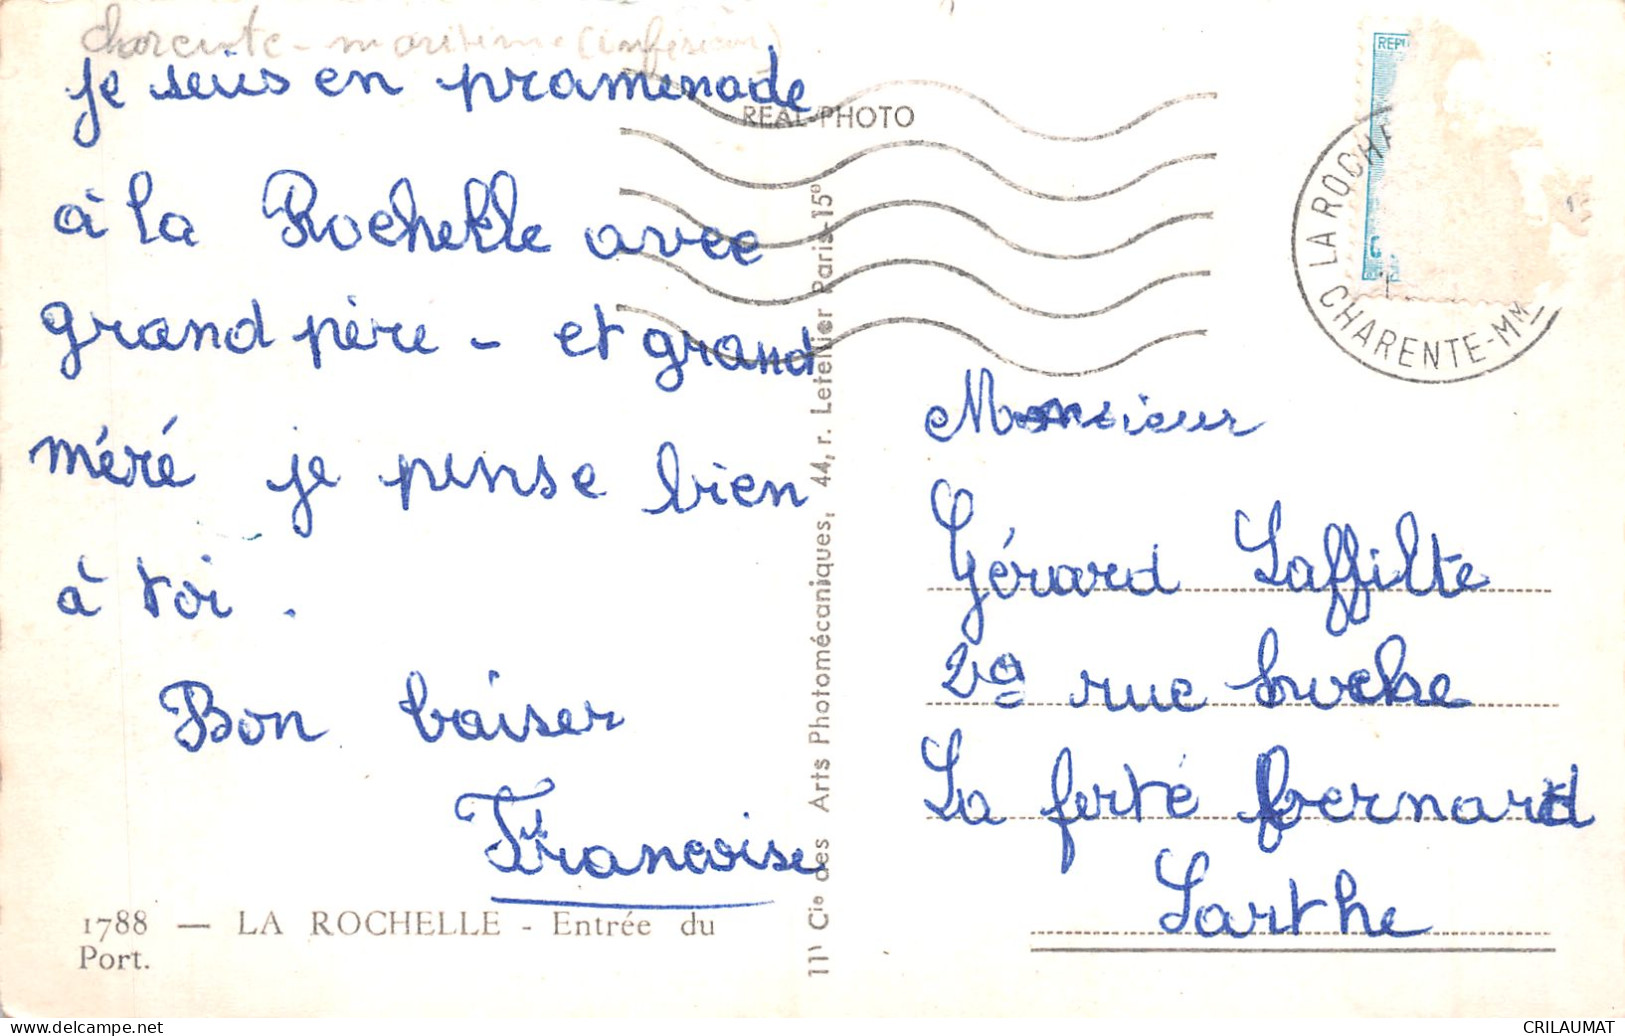 Charente-maritime (inférieur)
je suis en promenade
à la Rochelle avec
grand père - et grand
méré je pense bien
à toi.
Bon baiser
Françoise
1788 — LA ROCHELLE - Entrée du
Port.
REAL-PHOTO
Cie des Arts Photomécaniques, 44, r. Letellier Paris-15e
REPU
LA ROCHE
CHARENTE-MME
Monsieur
Gérard Laffilte
rue
La ferté bernard
Sarthe
CRILAUMAT